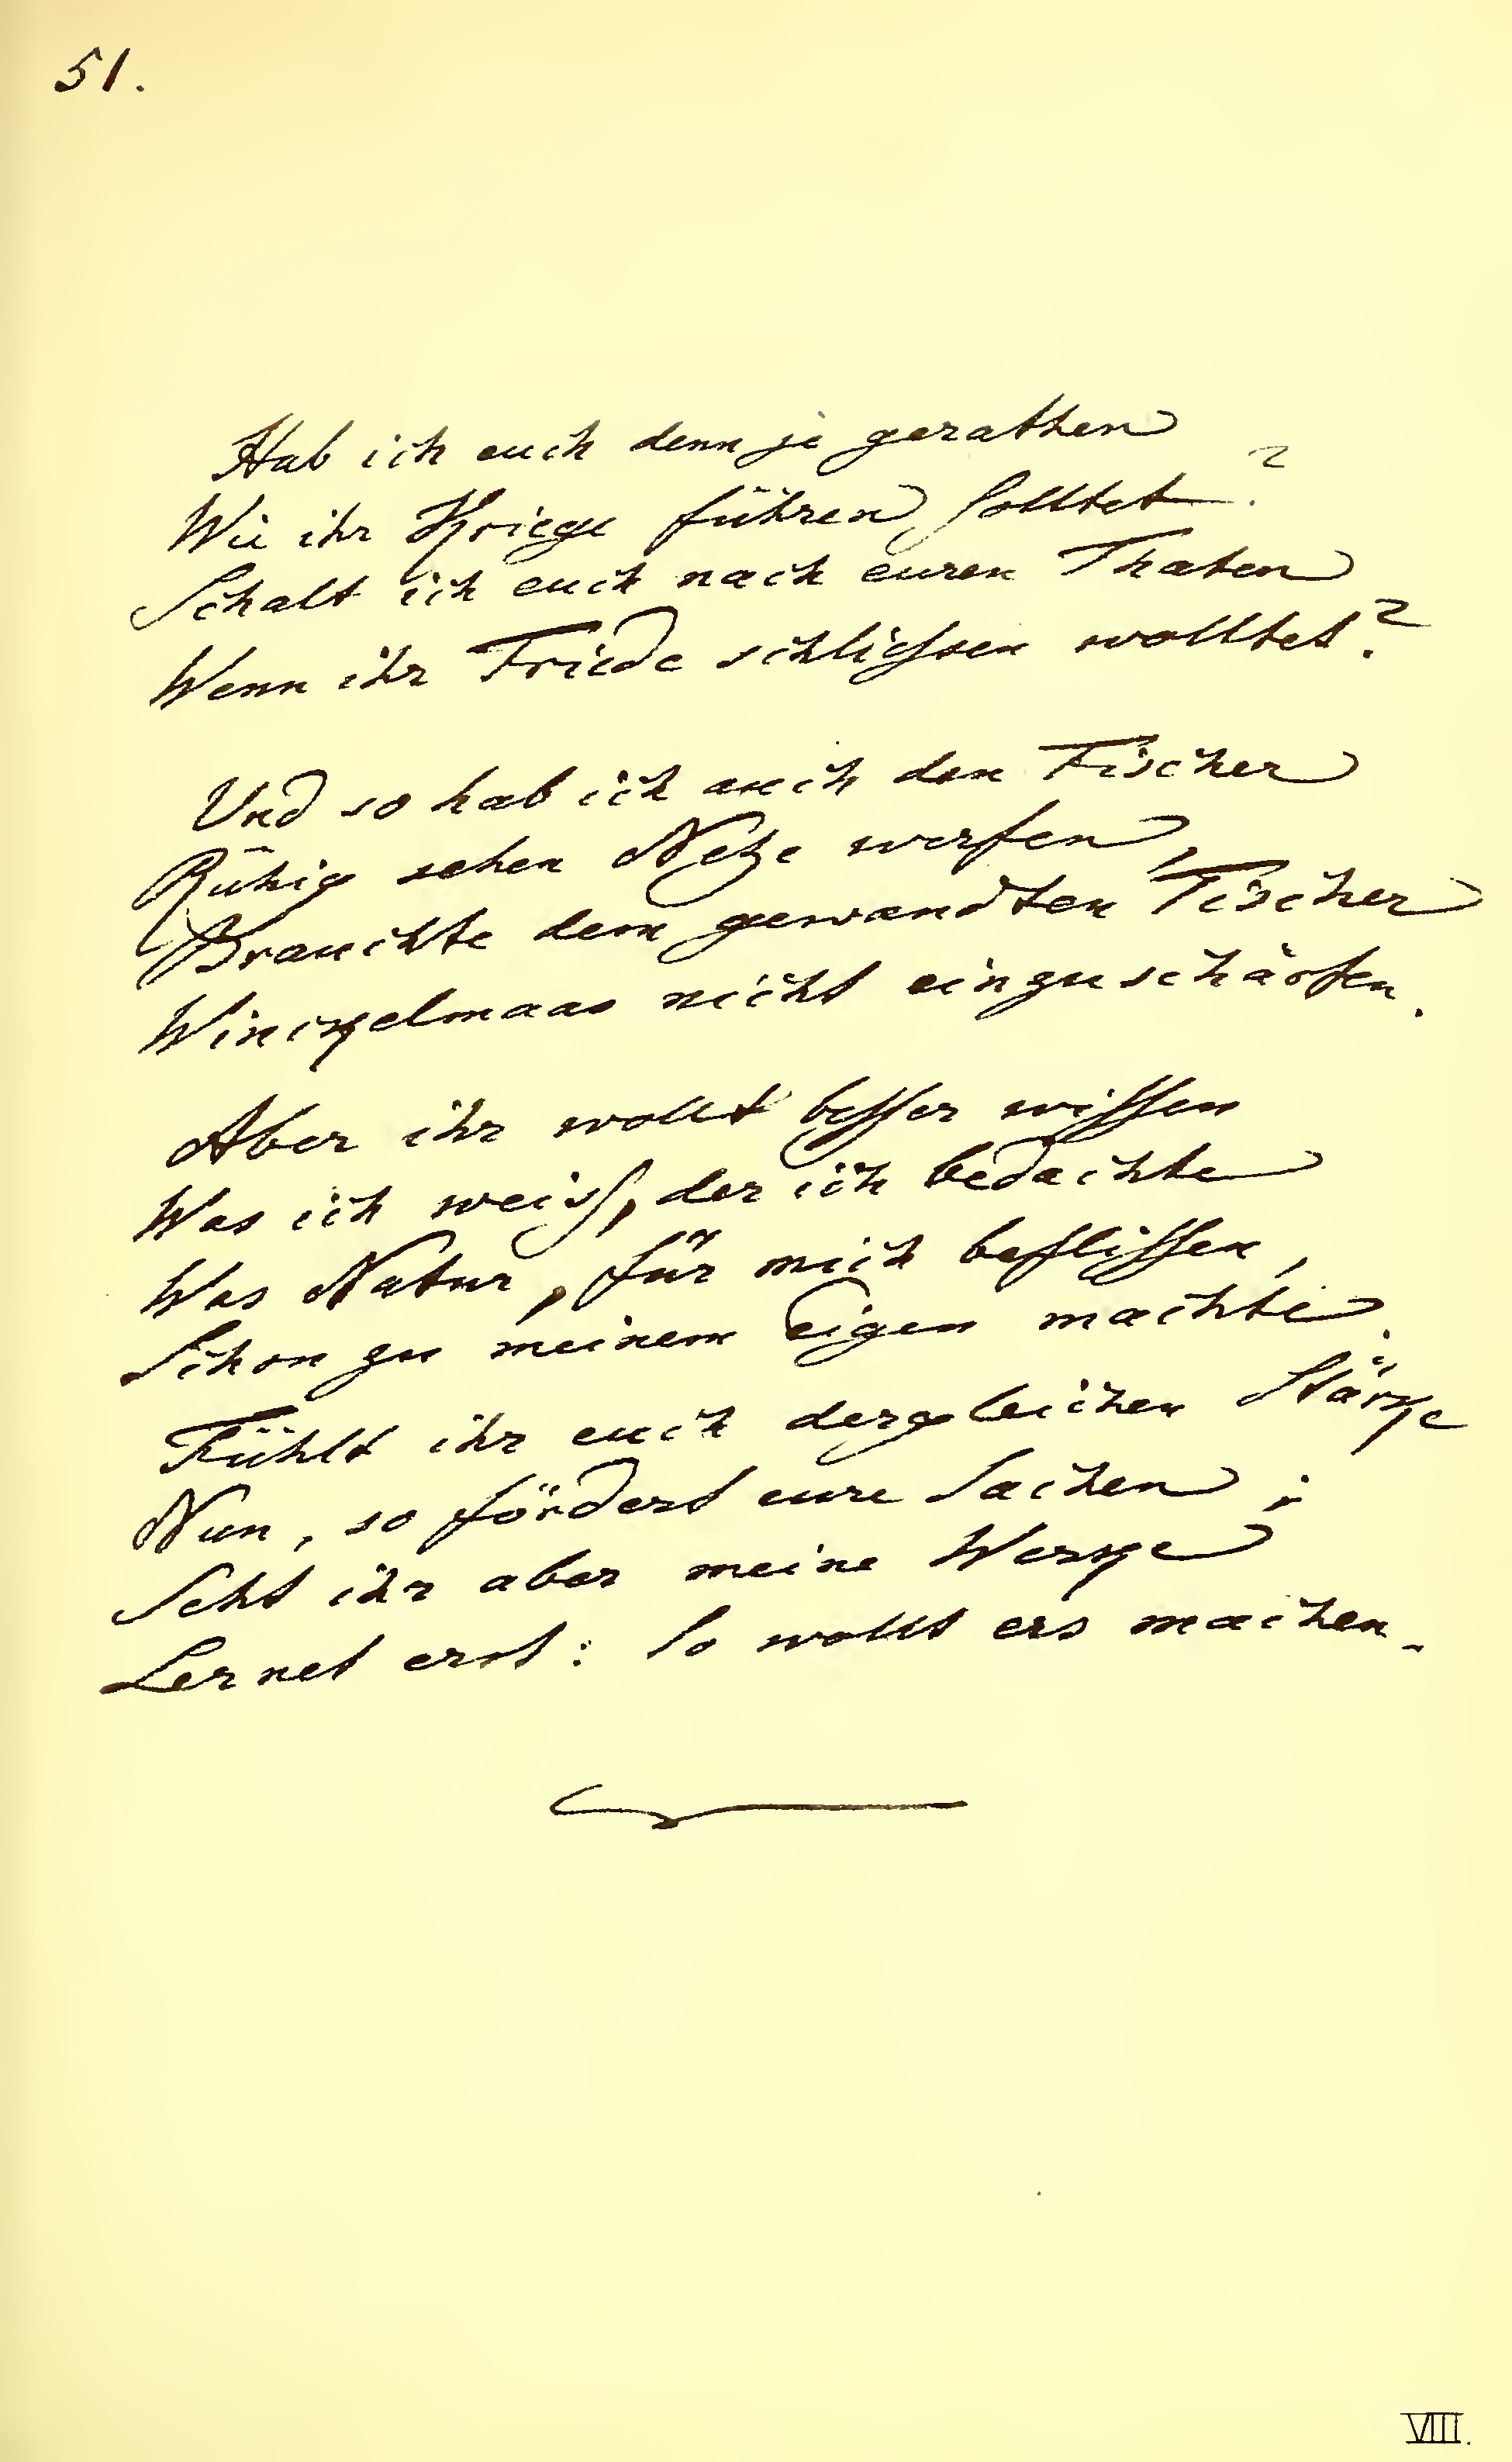 51.
Hab ich euch denn je gerathen
Wie ihr Kriege führen solltet?
Schalt ich euch nach euren Thaten
Wenn ihr Friede schliessen wolltet?
Und so hab ich auch den Fischer
Rühig sehen Netze werfen,
Brauchte dem gewandten Tischer
Winckelmaas nicht einzuschärfen.
Aber ihr wollt besser wissen
Was ich weiss, der ich bedachte
Was Natur, für mich beflissen,
Schon zu meinem Eigen machte.
Fühlt ihr euch dergleichen Stärke
Nun, so fördert eure Sachen;
Seht ihr aber meine Werke
Lernet erst: so wollt ers machen.
VIII.